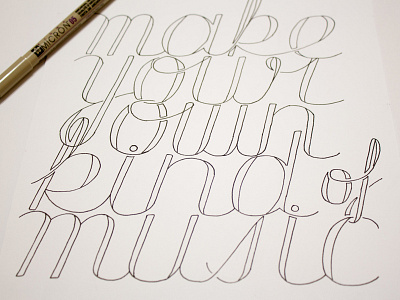 MICRON 05
make
your
own
kind of
music